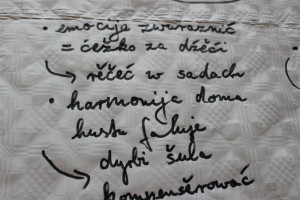 • emocije zwuraznić
= ćežko za dźěći
rěčeć w sadach
• harmonija doma
husto faluje
dyrbi šula
kompensěrować